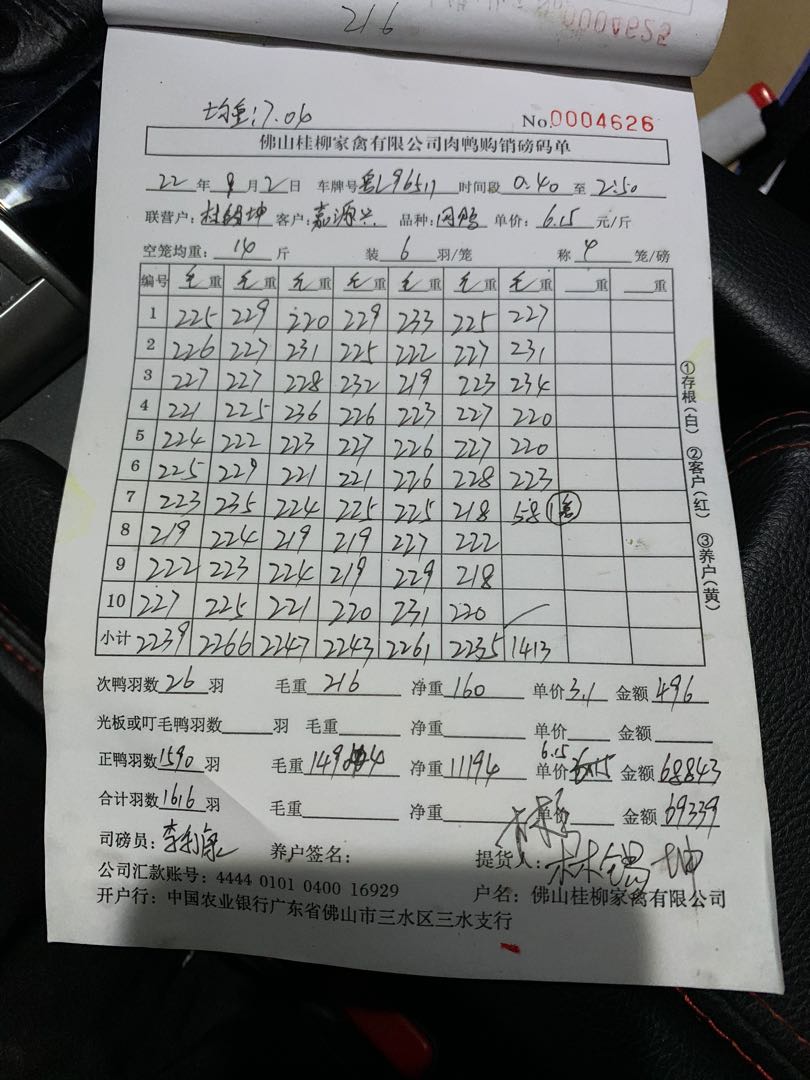 216
0004625
均重:7.04
No.0004626
佛山桂柳家禽有限公司肉鸭购销磅码单
22年9月2日 车牌号粤L96511 时间段0.40至2:50
联营户: 坤 客户:嘉源兴 品种: 鸭 单价:6.15元/斤
空笼均重:14斤 装6羽/笼 称4笼/磅
编号 毛重 毛重 毛重 毛重 毛重 毛重 毛重 重 重
1 225 229 220 229 233 225 227
2 226 227 231 225 222 227 231
3 227 227 228 232 219 223 234
4 221 225 236 226 223 227 220
5 224 222 223 227 226 227 220
6 225 229 221 221 226 228 223
7 223 235 224 225 225 218 58 1笼
8 219 224 219 219 227 222
9 222 223 224 219 229 218
10 227 225 221 220 231 220
小计 2239 2266 2247 2243 2261 2235 1413
次鸭羽数26羽 毛重216 净重160 单价3.1 金额496
光板或叮毛鸭羽数 羽 毛重 净重 单价 金额
正鸭羽数1590羽 毛重14904 净重11194 单价6.15 金额68843
合计羽数1616羽 毛重 净重 单价 金额69339
司磅员: 养户签名: 提货人:
公司汇款账号:4444 0101 0400 16929 户名:佛山桂柳家禽有限公司
开户行:中国农业银行广东省佛山市三水区三水支行
①存根(白) ②客户(红) ③养户(黄)